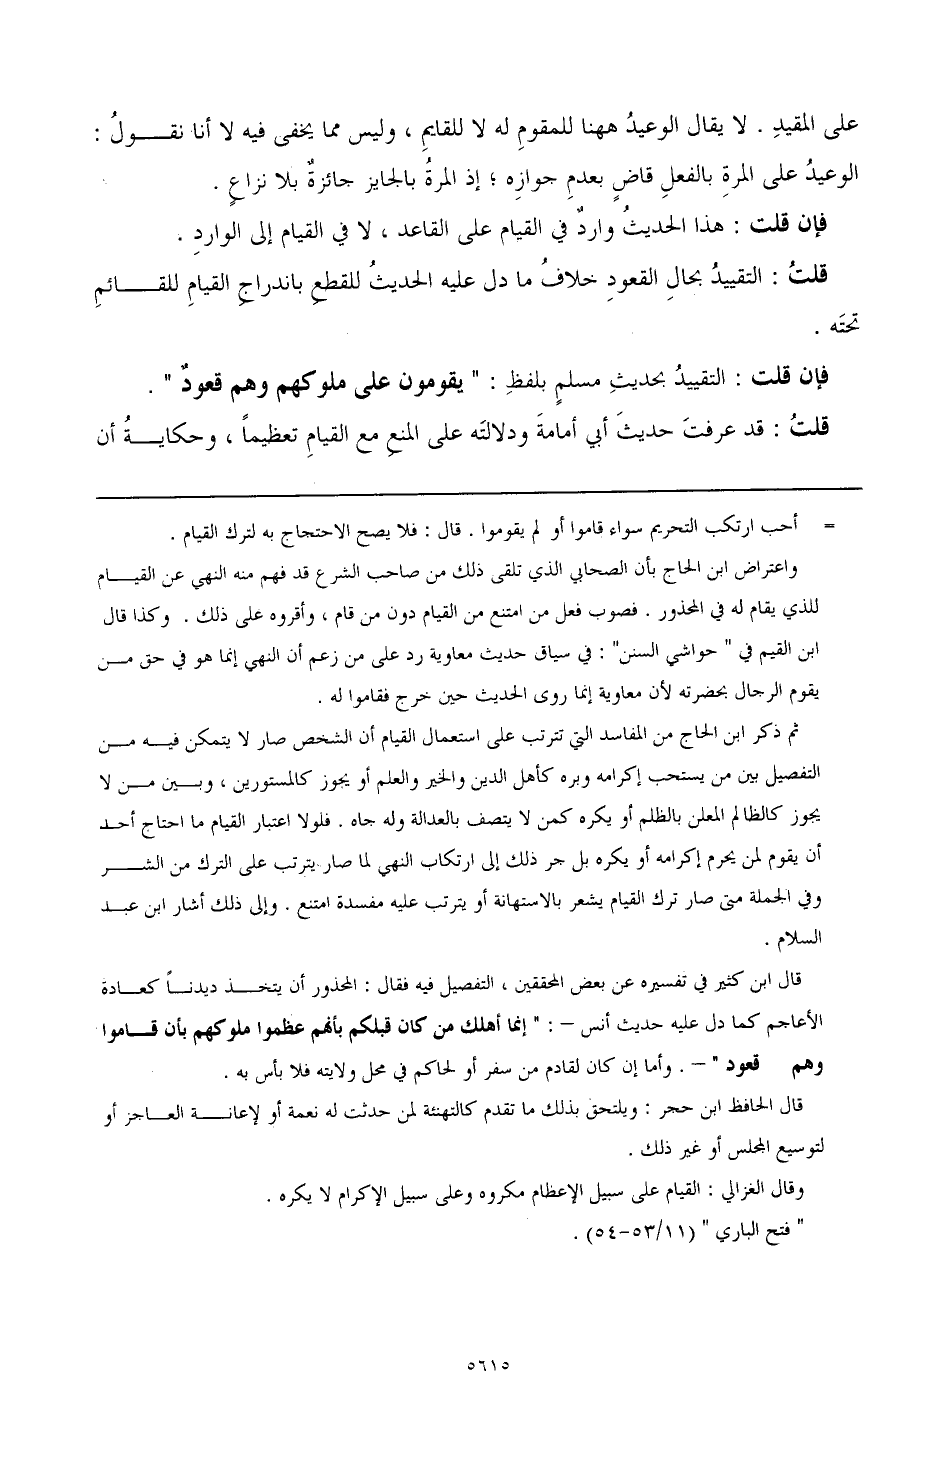 على المقيدِ . لا يقال الوعيدُ ههنا للمقومِ له لا للقايمِ ، وليس مما يخفى فيه لا أنا نقــــولُ :
الوعيدُ على المرةِ بالفعلِ قاضٍ بعدمِ جوازِه ؛ إذ المرةُ بالجايز جائزةٌ بلا نزاعٍ .
فإن قلت : هذا الحديثُ واردٌ في القيام على القاعد ، لا في القيام إلى الواردِ .
قلتُ : التقييدُ بحالِ القعودِ خلافُ ما دل عليه الحديثُ للقطعِ باندراجِ القيامِ للقــــائمِ
تحتَه .
فإن قلت : التقييدُ بحديثِ مسلمٍ بلفظِ : " يقومون على ملوكهم وهم قعودٌ " .
قلتُ : قد عرفتَ حديثَ أبي أمامةَ ودلالتَه على المنعِ مع القيامِ تعظيماً ، وحكايــةُ أن
= أحب ارتكب التحريم سواء قاموا أو لم يقوموا . قال : فلا يصح الاحتجاج به لترك القيام .
واعتراض ابن الحاج بأن الصحابي الذي تلقى ذلك من صاحب الشرع قد فهم منه النهي عن القيــام
للذي يقام له في المحذور . فصوب فعل من امتنع من القيام دون من قام ، وأقروه على ذلك . وكذا قال
ابن القيم في " حواشي السنن" : في سياق حديث معاوية رد على من زعم أن النهي إنما هو في حق مــن
يقوم الرجال بحضرته لأن معاوية إنما روى الحديث حين خرج فقاموا له .
ثم ذكر ابن الحاج من المفاسد التي تترتب على استعمال القيام أن الشخص صار لا يتمكن فيــه مــن
التفصيل بين من يستحب إكرامه وبره كأهل الدين والخير والعلم أو يجوز كالمستورين ، وبــين مــن لا
يجوز كالظالم المعلن بالظلم أو يكره كمن لا يتصف بالعدالة وله جاه . فلولا اعتبار القيام ما احتاج أحــد
أن يقوم لمن يحرم إكرامه أو يكره بل جر ذلك إلى ارتكاب النهي لما صار يترتب على الترك من الشــــر
وفي الجملة متى صار ترك القيام يشعر بالاستهانة أو يترتب عليه مفسدة امتنع . وإلى ذلك أشار ابن عبــد
السلام .
قال ابن كثير في تفسيره عن بعض المحققين ، التفصيل فيه فقال : المحذور أن يتخــــذ ديدنــاً كعــادة
الأعاجم كما دل عليه حديث أنس – : " إنما أهلك من كان قبلكم بأنهم عظموا ملوكهم بأن قــاموا
وهم قعود "– . وأما إن كان لقادم من سفر أو لحاكم في محل ولايته فلا بأس به .
قال الحافظ ابن حجر : ويلتحق بذلك ما تقدم كالتهنئة لمن حدثت له نعمة أو لإعانــــة العــاجز أو
لتوسيع المجلس أو غير ذلك .
وقال الغزالي : القيام على سبيل الإعظام مكروه وعلى سبيل الإكرام لا يكره .
" فتح الباري " (٥٣/١١–٥٤) .
٥٦١٥